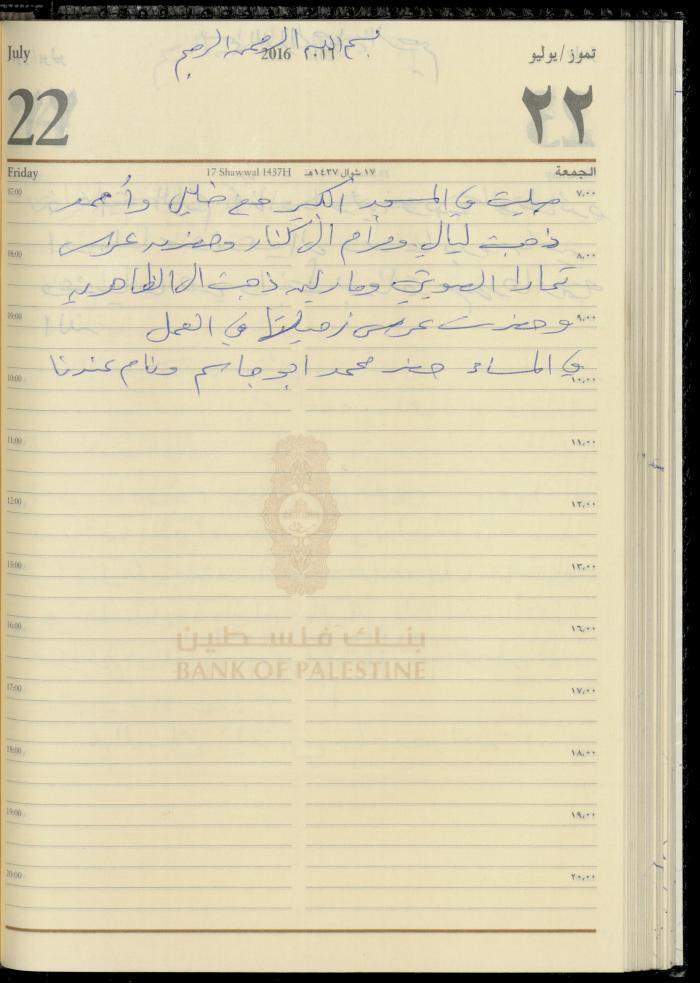 July
بسم الله الرحمن الرحيم
2016 ٢٠١٦
تموز / يوليو
22
٢٢
Friday
17 Shawwal 1437H
١٧ شوال ١٤٣٧هـ
الجمعة
07:00 ٧،٠٠
صليت في المسجد الكبير مع خليل وأحمد
ذهبت ليالي ومرام الى وحضرت عرس
08:00 ٨،٠٠
تمارا الصويتي ومارلين ذهبت الى الظاهرية
09:00 ٩،٠٠
وحضرت عرس زميلتها في العمل
في المساء حضر محمد ابو جاسم ونام عندنا
10:00 ١٠،٠٠
11:00 ١١،٠٠
12:00 ١٢،٠٠
15:00 ١٣،٠٠
16:00 ١٦،٠٠
بنك فلسطين
BANK OF PALESTINE
17:00 ١٧،٠٠
18:00 ١٨،٠٠
19:00 ١٩،٠٠
20:00 ٢٠،٠٠